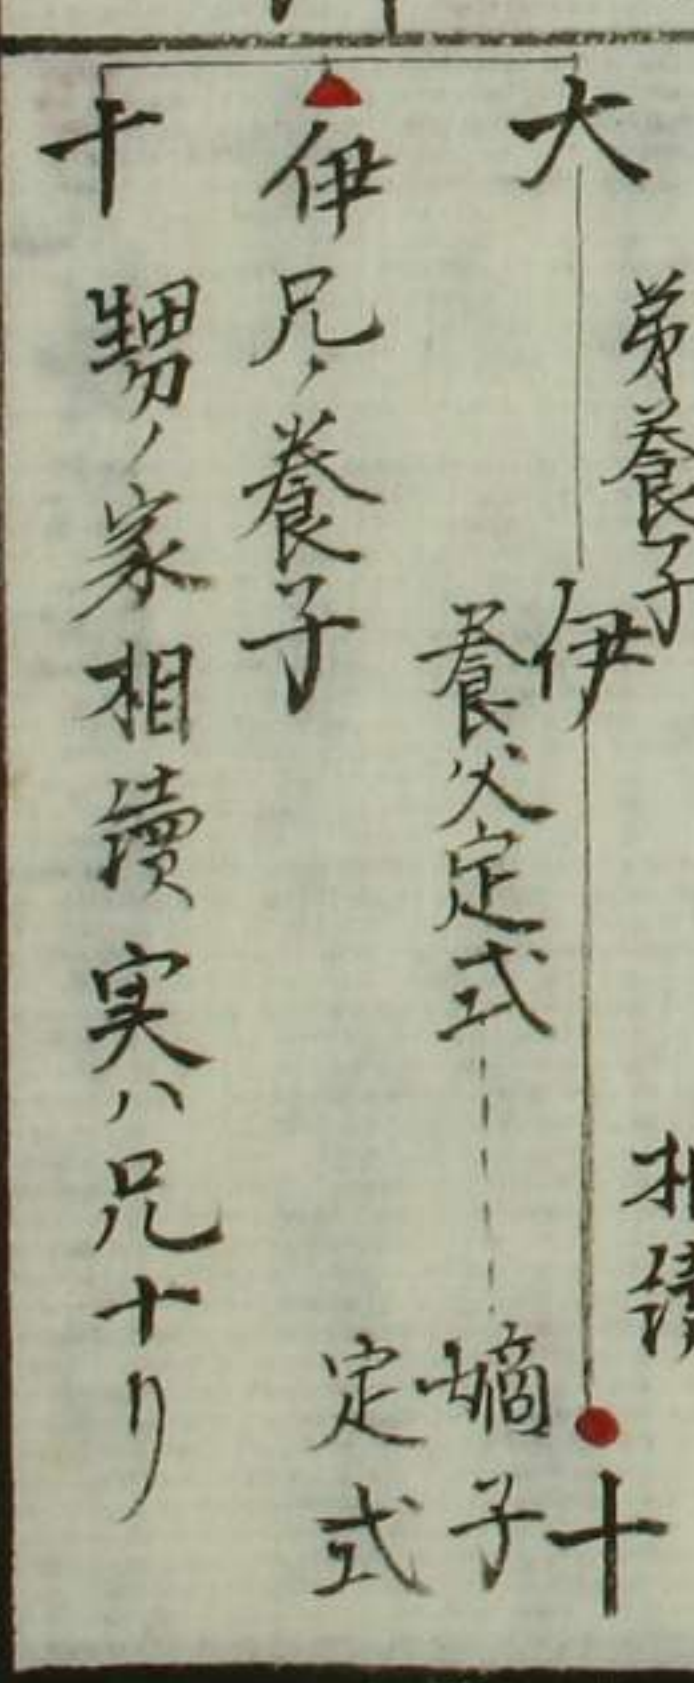 弟養子
相續
大
伊
養父定式
十
嫡子
定式
伊
兄ノ養子
十
甥ノ家相續実ハ兄十リ